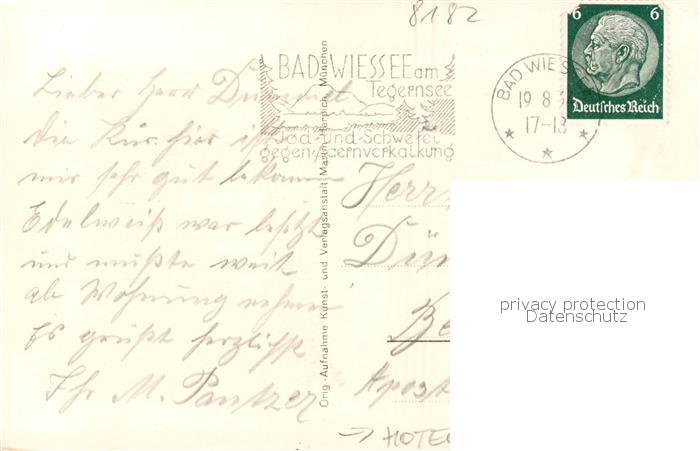 8182
BAD WIESSEE am
Tegernsee
Jod- und Schwefel
gegen Adernverkalkung
BAD WIESS
19 8 3
17-18
6 6
Deutsches Reich
Lieber Herr
Die Kur hier ist
mir sehr gut bekommen
Edelweiß war besetzt
und mußte weit
ab Wohnung nehmen
Es grüßt herzlichst
Ihr M. Pantzer
Orig.-Aufnahme Kunst- und Verlagsanstalt Martin Herpich, München
Herr
Dün
Be
Apost
→ HOTEL
privacy protection
Datenschutz